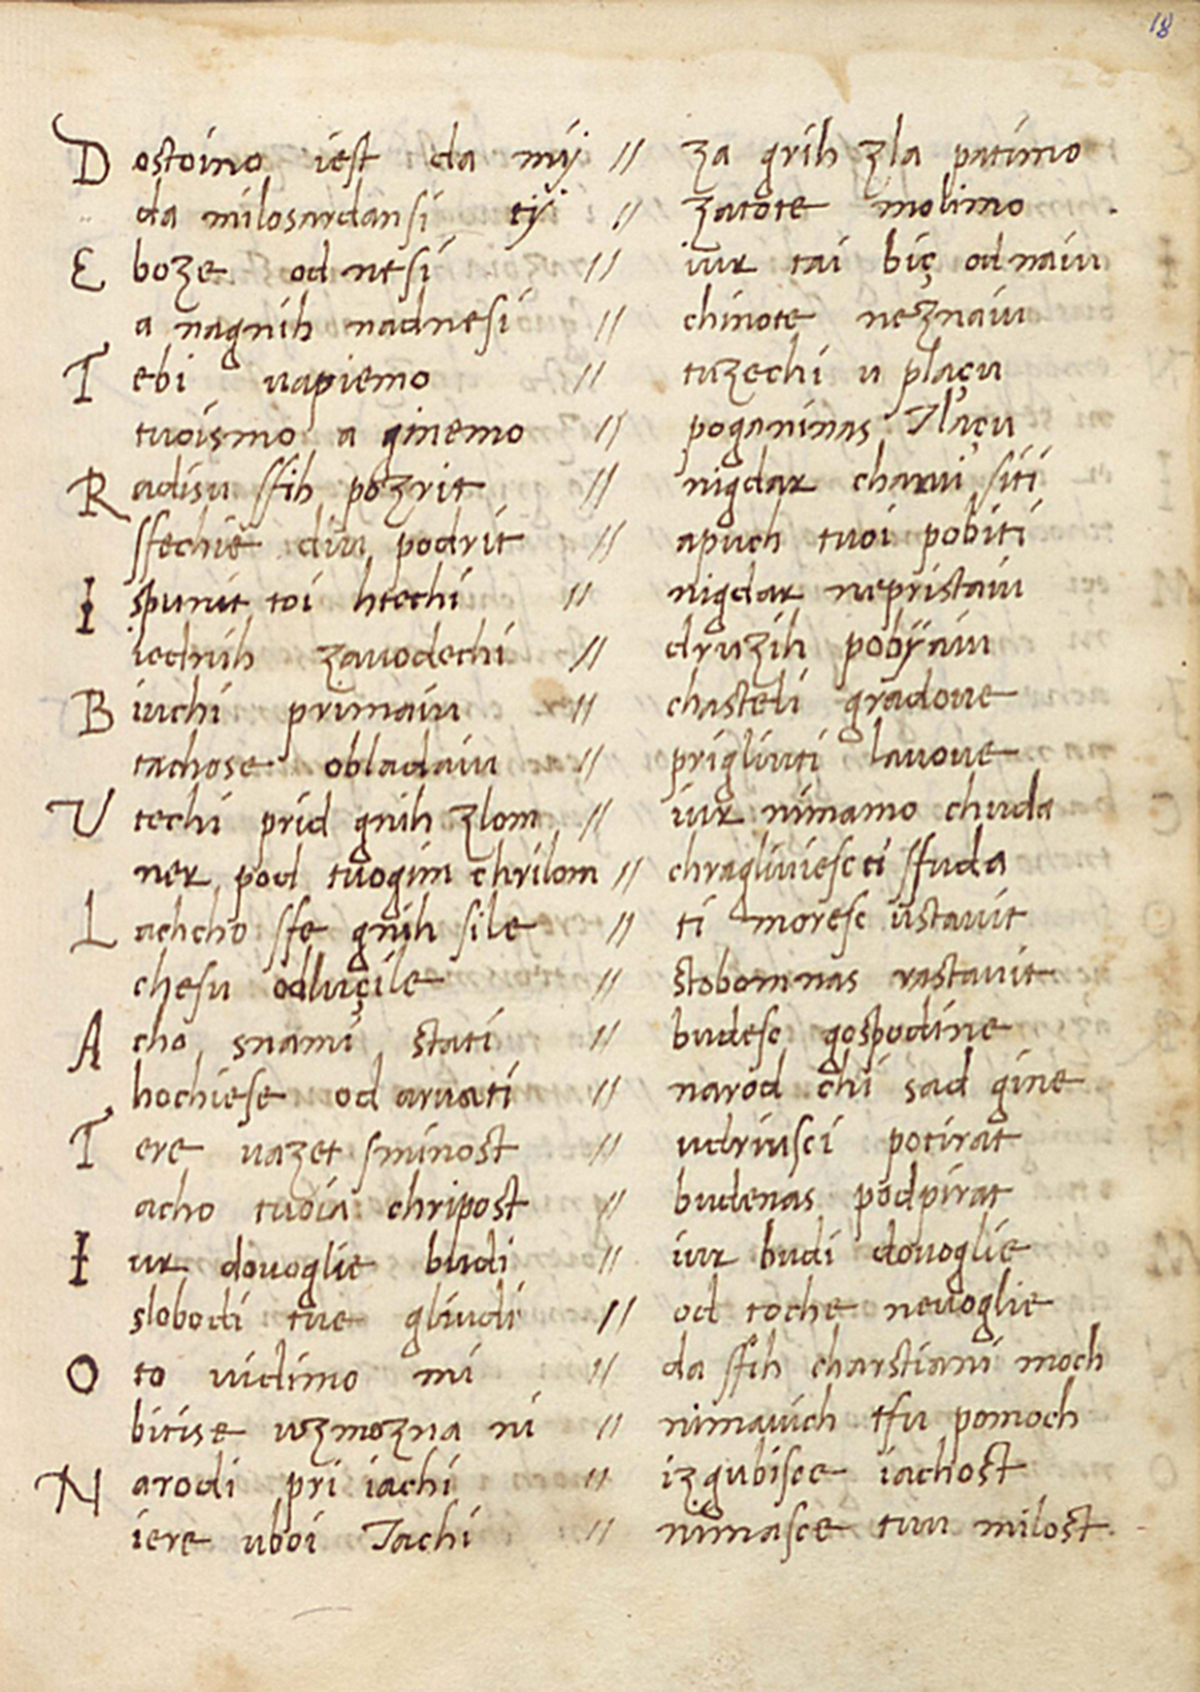 18
Dostoino iest da mÿ // za grih zla patimo
da milosardansi tÿ // zatote molimo
E boze od nesi // iur tai biç odnaiu
a nagnih nadnesi // chinote neznaiu
Tebi uapiemo // tuzechi u plaçu
tuoismo a ginemo // poganinas Tlaçu
Radisu ssih pozrit // nigdar charui siti
ssechie diu podrit // apuch tuoi pobiti
I spunit toi htechi // nigdar nepristaiu
iednih zauodechi // druzih pobÿaiu
Biuchi primaiu // chasteli gradoue
tachose obladaiu // prigliuti lauoue
Utechi prid gnih zlom // iur nimamo chuda
ner pod tuogim chrilom // chragliuiesc ti sfuda
Lachcho sfe gnih sile // ti moresc ustauit
chesu odluçile // stobomnas rastauit
Acho snami stati // budesc gospodine
hochiese od aruati // narod chi sad gine
Tere uazet sminost // udriusci potirat
acho tuoia chripost // budenas podpirat
Iur douoglie budi // iur budi douoglie
slobodi tue gliudi // od toche neuoglie
Oto uidimo mi // da sfih charstiani moch
bitise uzmozna ni // nimauich tfu pomoch
Narodi pri iachi // izgubisce iachost
iere uboi Tachi // nimasce tuu milost